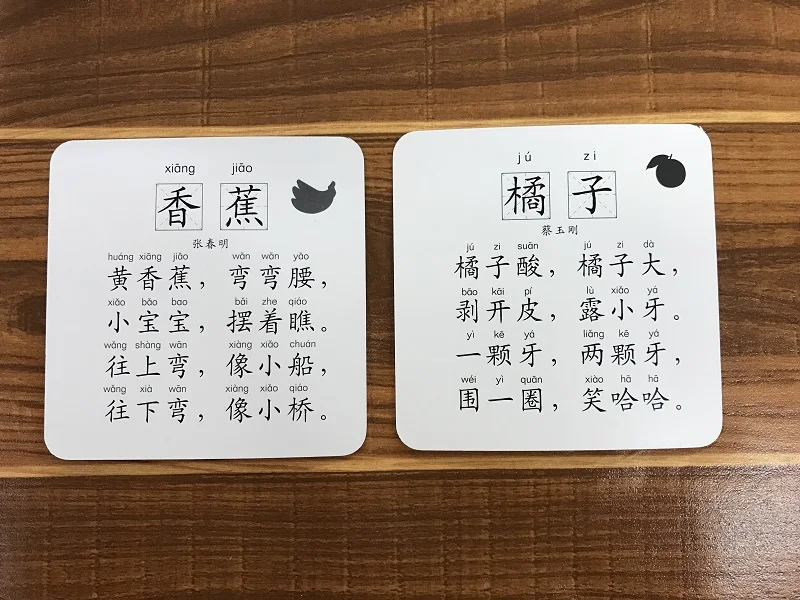 xiāng jiāo
香蕉
张春明
huáng xiāng jiāo wān wān yāo
黄香蕉，弯弯腰，
xiǎo bǎo bao bǎi zhe qiáo
小宝宝，摆着瞧。
wǎng shàng wān xiàng xiǎo chuán
往上弯，像小船，
wǎng xià wān xiàng xiǎo qiáo
往下弯，像小桥。
jú zi
橘子
蔡玉刚
jú zi suān jú zi dà
橘子酸，橘子大，
bāo kāi pí lù xiǎo yá
剥开皮，露小牙。
yì kē yá liǎng kē yá
一颗牙，两颗牙，
wéi yì quān xiào hā hā
围一圈，笑哈哈。